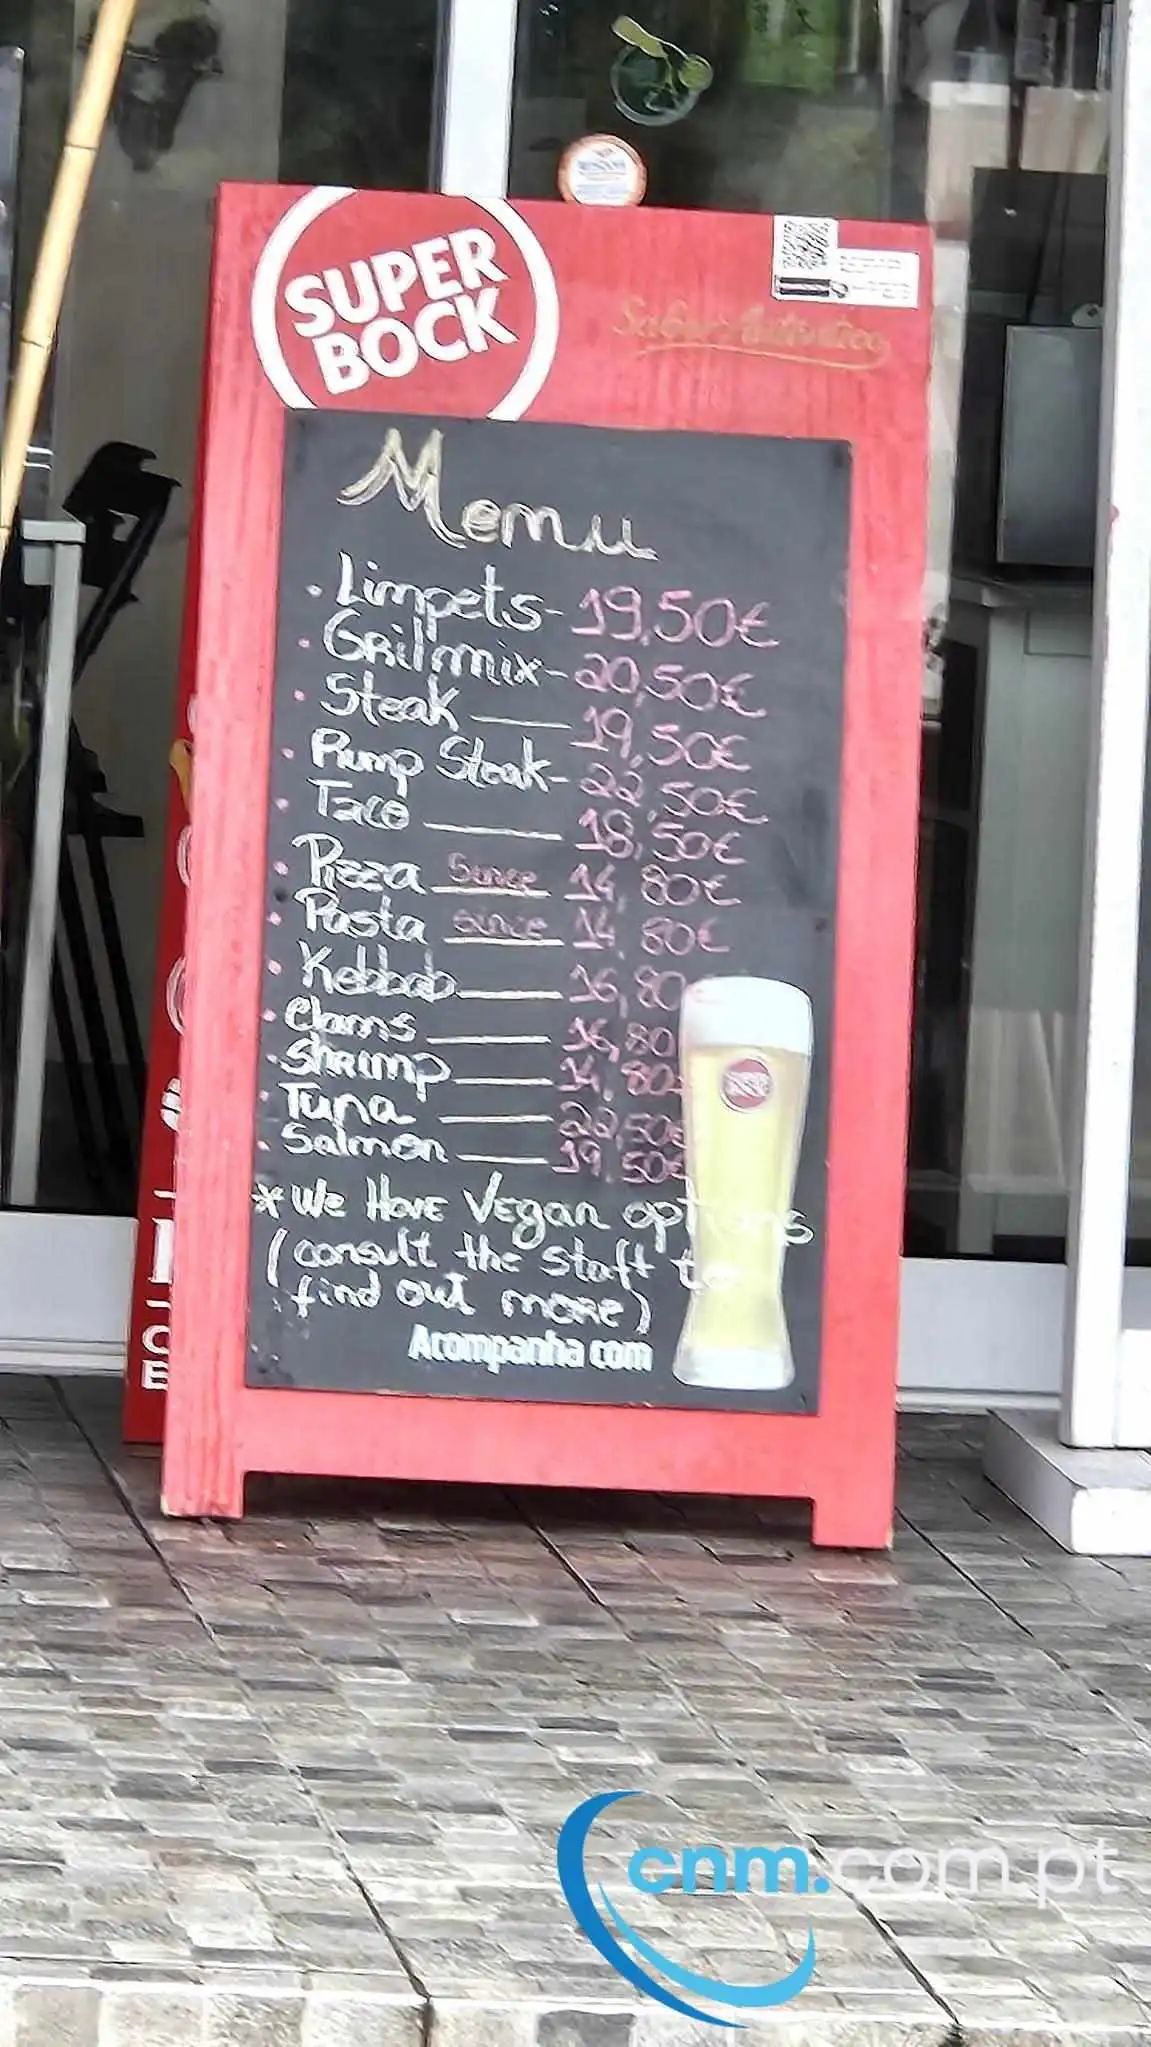 SUPER
BOCK
Sabor Autêntico
Menu
· Limpets - 19,50€
· Grilmix - 20,50€
· Steak — 19,50€
· Rump Steak - 22,50€
· Taco — 18,50€
· Pizza Since 14,80€
· Pasta since 14,80€
· Kebbab — 16,80€
· Clams — 16,80
· Shrimp — 14,80€
· Tuna — 22,50€
· Salmon — 19,50€
* We Have Vegan options
(consult the staff to
find out more)
Acompanha com
cnm.com.pt